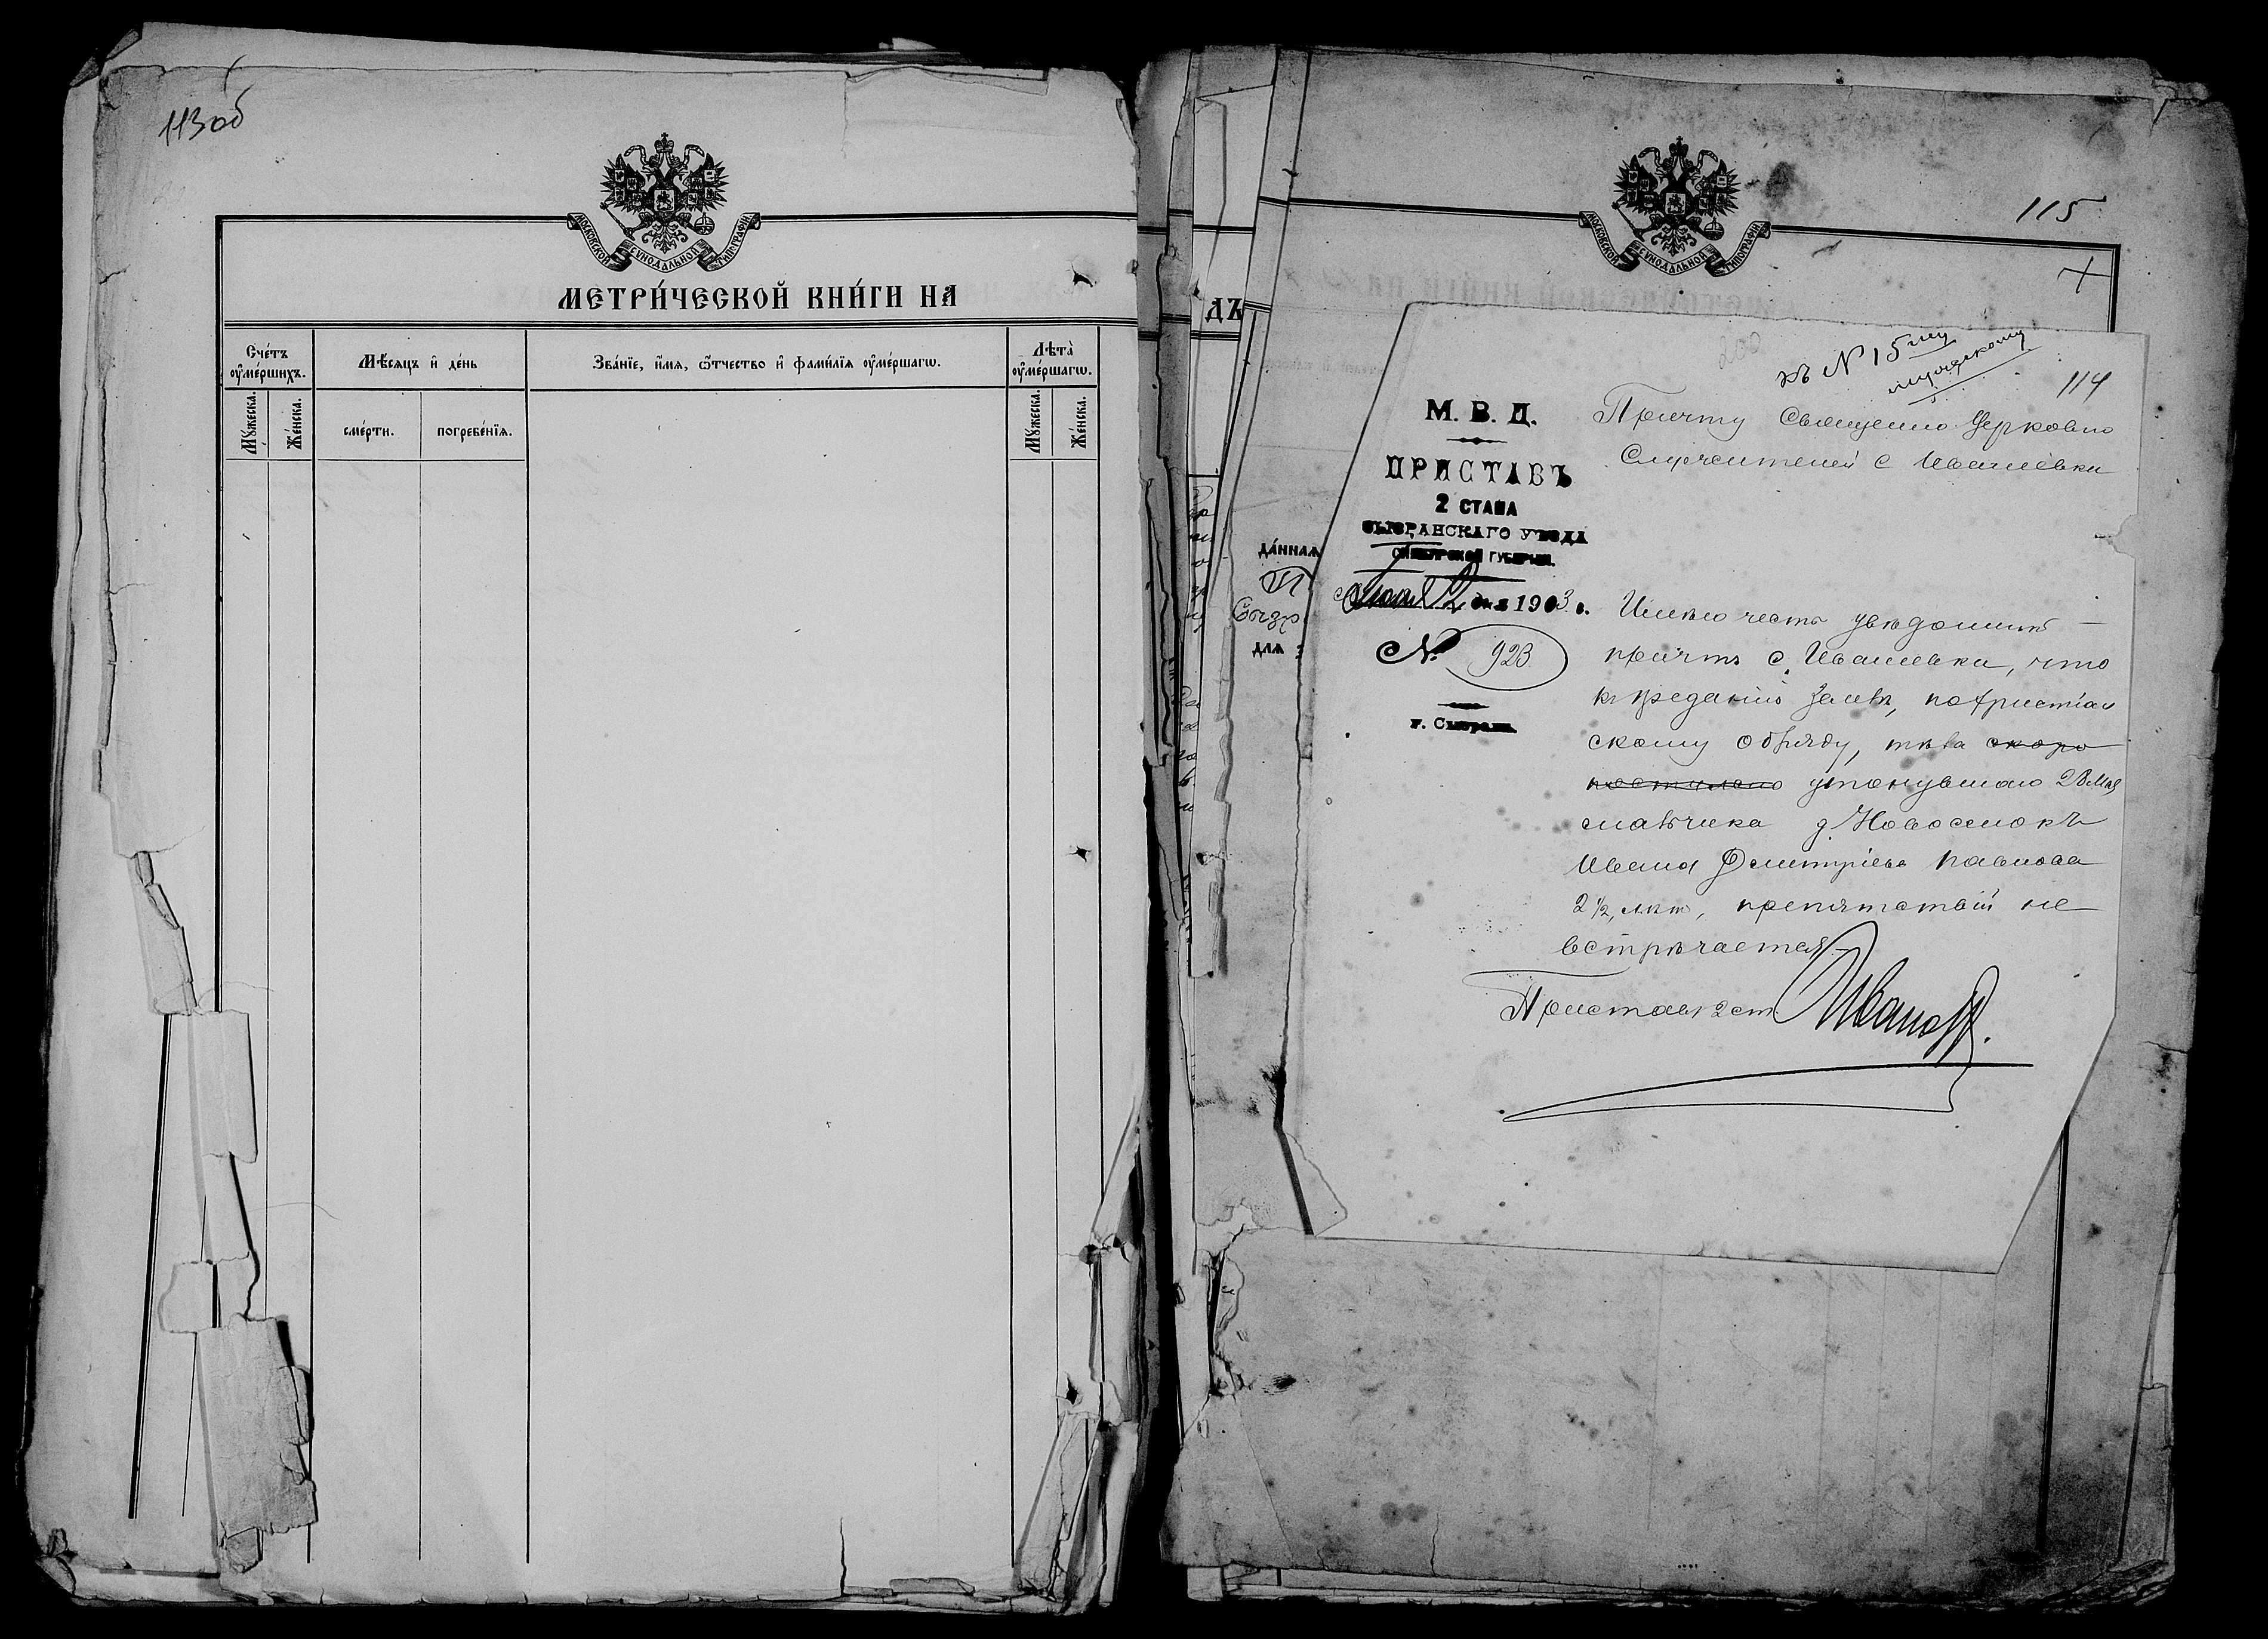 113 об
МОСКОВСКОЙ СѴНОДАЛЬНОЙ ТИПОГРАФІИ
МЕТРИ́ЧЕСКОЙ КНИ́ГИ НА
Сче́тъ ᲂу҆ме́ршихъ.
Мѣ́сяцъ и҆ де́нь
Зва́нїе, и҆́мѧ, ѻ҆́тчество и҆ фами́лїѧ ᲂу҆ме́ршагѡ.
Лѣ́та ᲂу҆ме́ршагѡ.
Мꙋ́жеска.
Же́нска.
сме́рти.
погребе́нїѧ.
Мꙋ́жеска.
Же́нска.
115
МОСКОВСКОЙ СѴНОДАЛЬНОЙ ТИПОГРАФІИ
ДЪ
да́ннаѧ
Сызр
для
къ № 15му
мужскому
114
М. В. Д.
ПРИСТАВЪ
2 СТАНА
СЫЗРАНСКАГО УѢЗДА
СИМБИРСКОЙ ГУБЕРНІИ.
2 дня 1903 г.
№ 923
г. Сызрань.
Причту Священно Церковно
Служителей с Ивашевки
Имѣю честь увѣдомить
причтъ с. Ивашевки, что
къ преданію землѣ, по христіан
скому обряду, тѣла скоро
постижно утонувшаго 28 Мая
мальчика д. Новоселокъ
Ивана Дмитріева Павлова
2½ лѣтъ, препятствій не
встрѣчается
Приставъ 2 ст. Ивановъ.